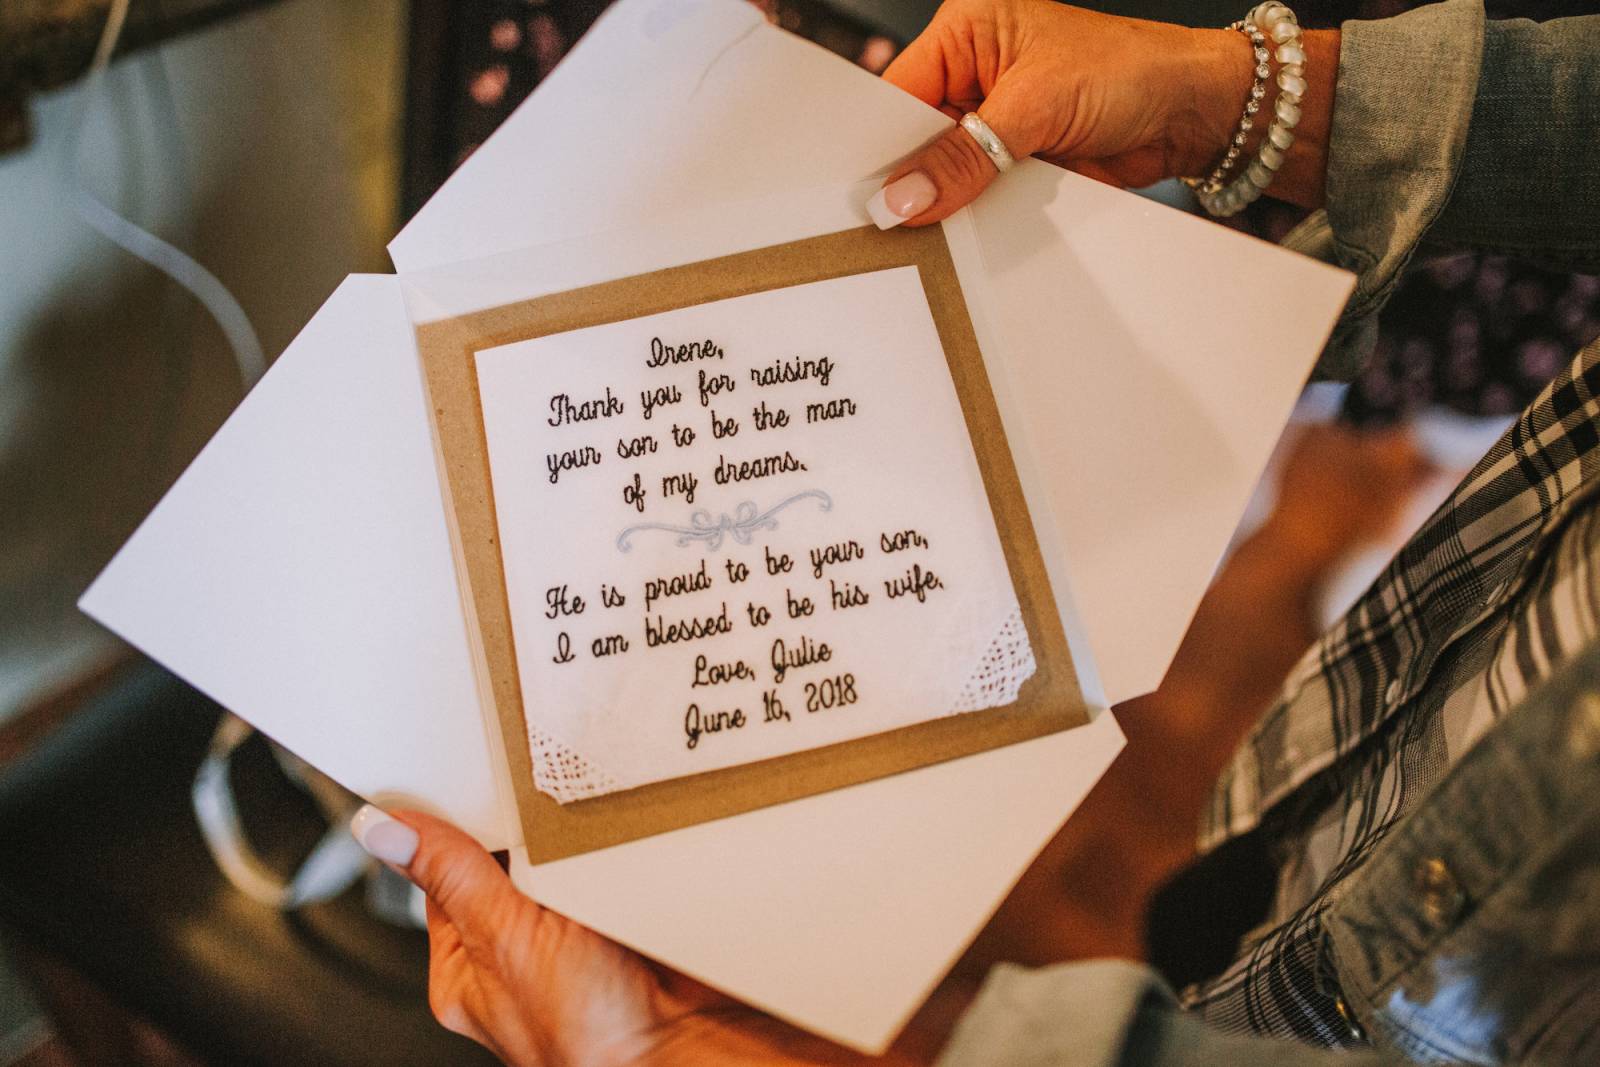 Irene,
Thank you for raising
your son to be the man
of my dreams.
He is proud to be your son,
I am blessed to be his wife.
Love, Julie
June 16, 2018